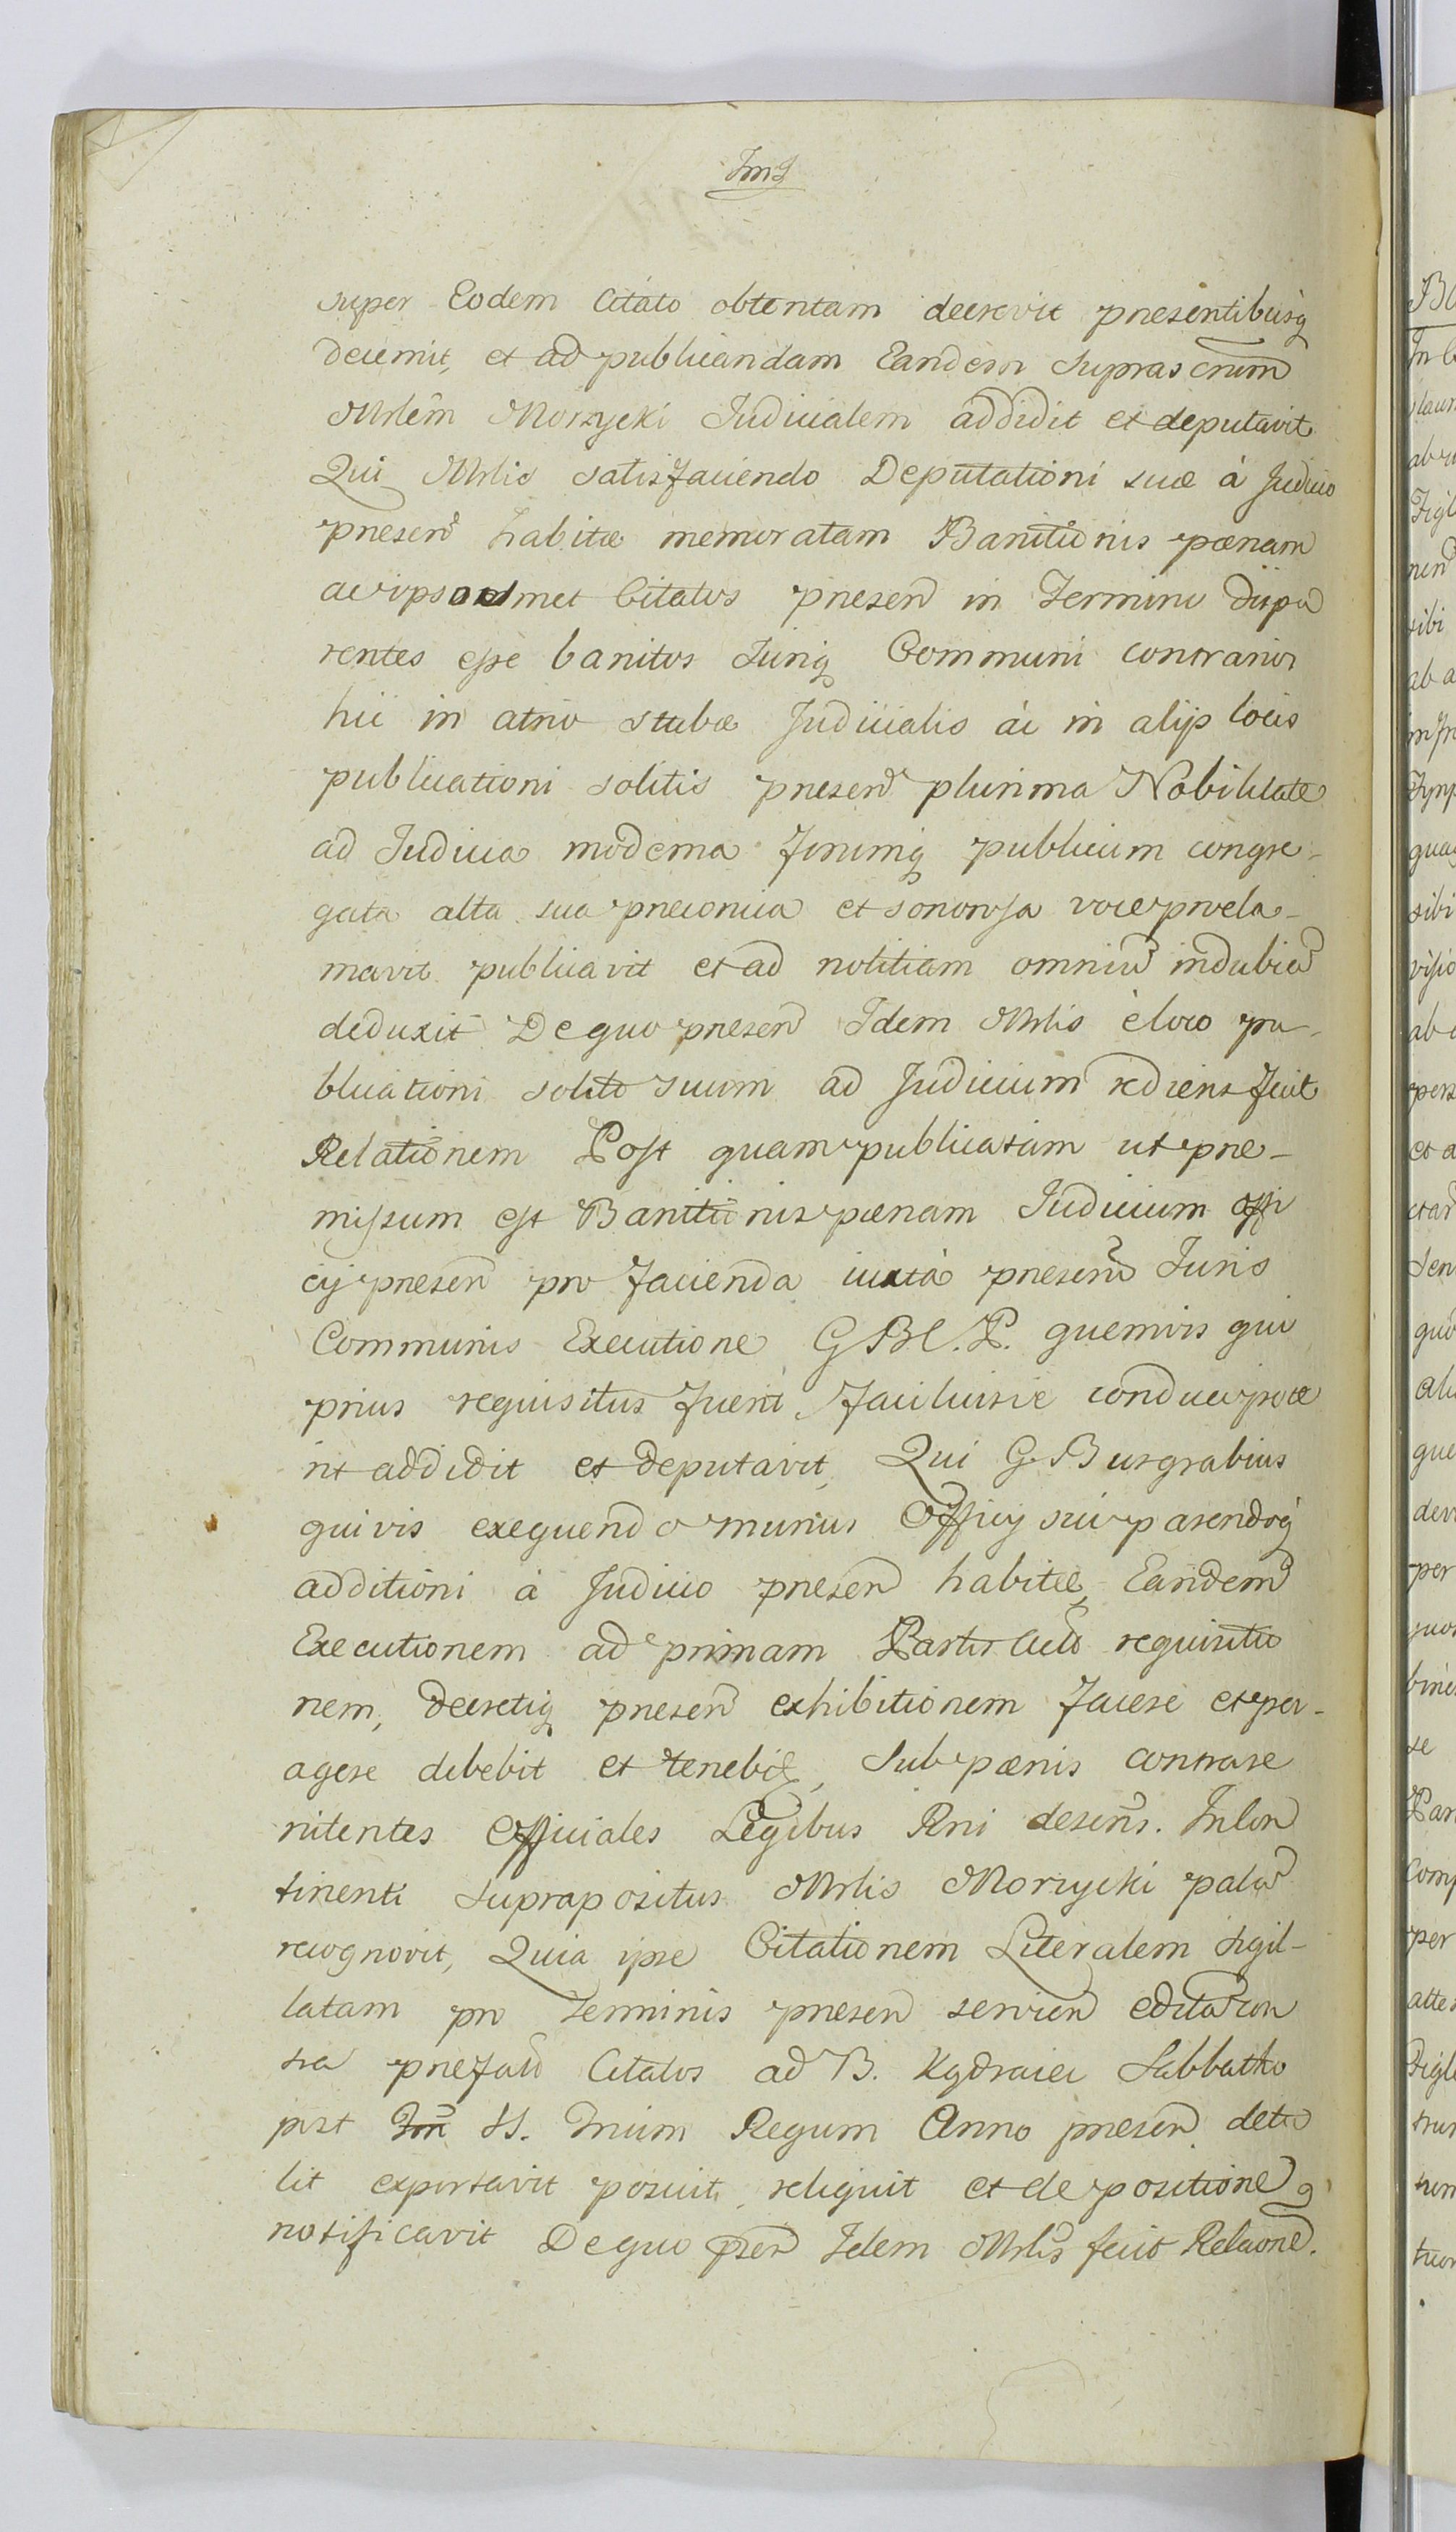 super Eodem Citato obtentam decrevit presentibusq
decernit, et ad publicandam Eandem supras cnum
Mrlêm Morzycki Judicialem addidit et deputavit
Qui Mrlis satisfaciendo Deputationi suæ à Judicio
presen habitæ memoratam Banitionis pænam
ac ipsosmet Citatos presen in Termino dispa
rentes esse banitos Juriq Communi contrarios
hic in atrio stubæ Judicialis ac in alijs locis
publicationi solitis presen plurima Nobilitate
ad Judicia moderna forumq publicum congre-
gata alta sua preconica et sonorosa voce procla-
mavit publicavit et ad notitiam omniu indubia
deduxit De quo presen Idem Mrlis è loco pu-
blicationi solito suum ad Judicium rediens fecit
Relationem Post quam publicatam ut pre-
missum est Banitionis pænam Judicium offi
cij presen pro facienda iuxta presens Juris
Communis Executione G B C. P. quemvis qui
prius requisitus fuerit
nt addidit et deputavit, Qui G. Burgrabius
quivis exequendo munus Officij sui parendoq
additioni à Judicio presen habitæ, Eandem
Executionem ad primam Partis Acto requisitio
nem, decretiq presen exhibitionem facere et per-
agere debebit et tenebit, sub pænis contrare
nitentes Officiales Legibus Rni desens. Incon
tinenti suprapositus Mrlis Morzycki palã
recognovit, Quia ipse Citationem Literalem sigil-
latam pro Terminis presen servien editã con
tra prefato Citatos ad B. Sabbatho
post SS. Trium Regum Anno presen detu
lit exportavit posuit, reliquit et de positione
notificavit De quo presen Idem Mrlis fecit Relaone.